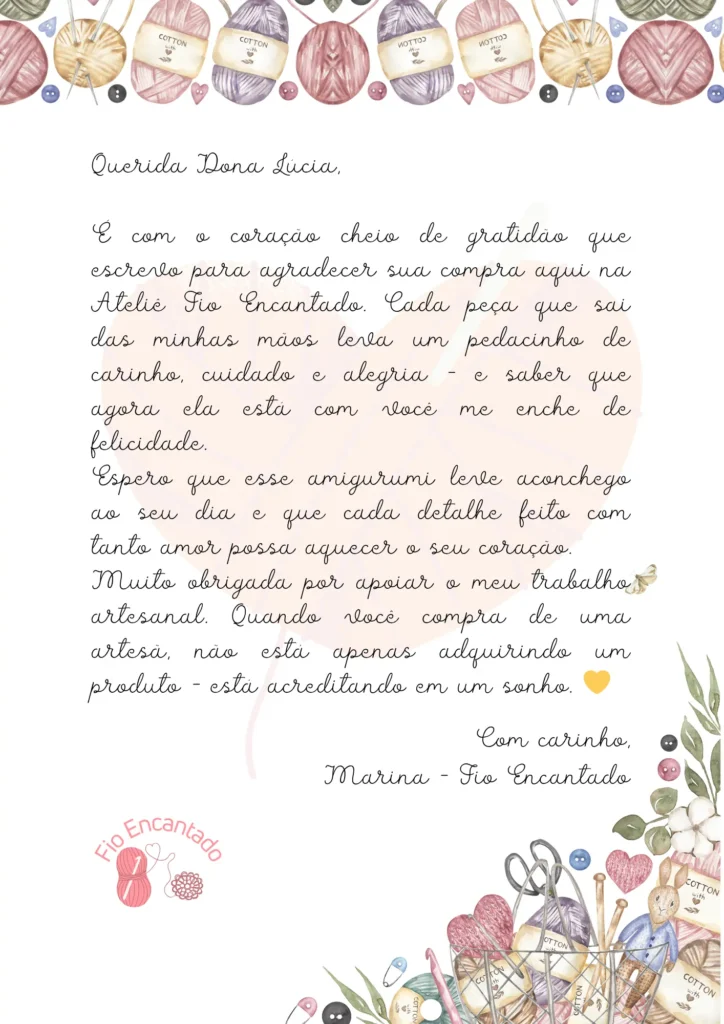 COTTON
with
COTTON
with
COTTON
with
COTTON
with
Querida Dona Lúcia,
É com o coração cheio de gratidão que
escrevo para agradecer sua compra aqui na
Ateliê Fio Encantado. Cada peça que sai
das minhas mãos leva um pedacinho de
carinho, cuidado e alegria - e saber que
agora ela está com você me enche de
felicidade.
Espero que esse amigurumi leve aconchego
ao seu dia e que cada detalhe feito com
tanto amor possa aquecer o seu coração.
Muito obrigada por apoiar o meu trabalho
artesanal. Quando você compra de uma
artesã, não está apenas adquirindo um
produto - está acreditando em um sonho. 💛
Com carinho,
Marina - Fio Encantado
Fio Encantado
COTTON
with
COTTON
with
COTTON
COTTON
COTTON